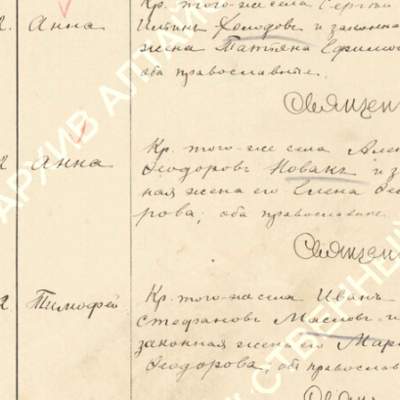 Кр. того-же села Сергѣй
2. Анна
Холодовъ и законная
жена Татьяна Ефимо
оба православные.
Священ
Кр. того-же села Але
2 Анна
Ѳеодоровъ Новакъ и за
ная жена его Елена Ѳео
рова, оба православные.
Священ
2 Тимофей
Кр. того-же села Иванъ
Стефановъ Масловъ и
законная жена его Мар
Ѳеодорова, оба православ
Священ
АРХИВ АЛТАЙ
СТВЕННЫЙ